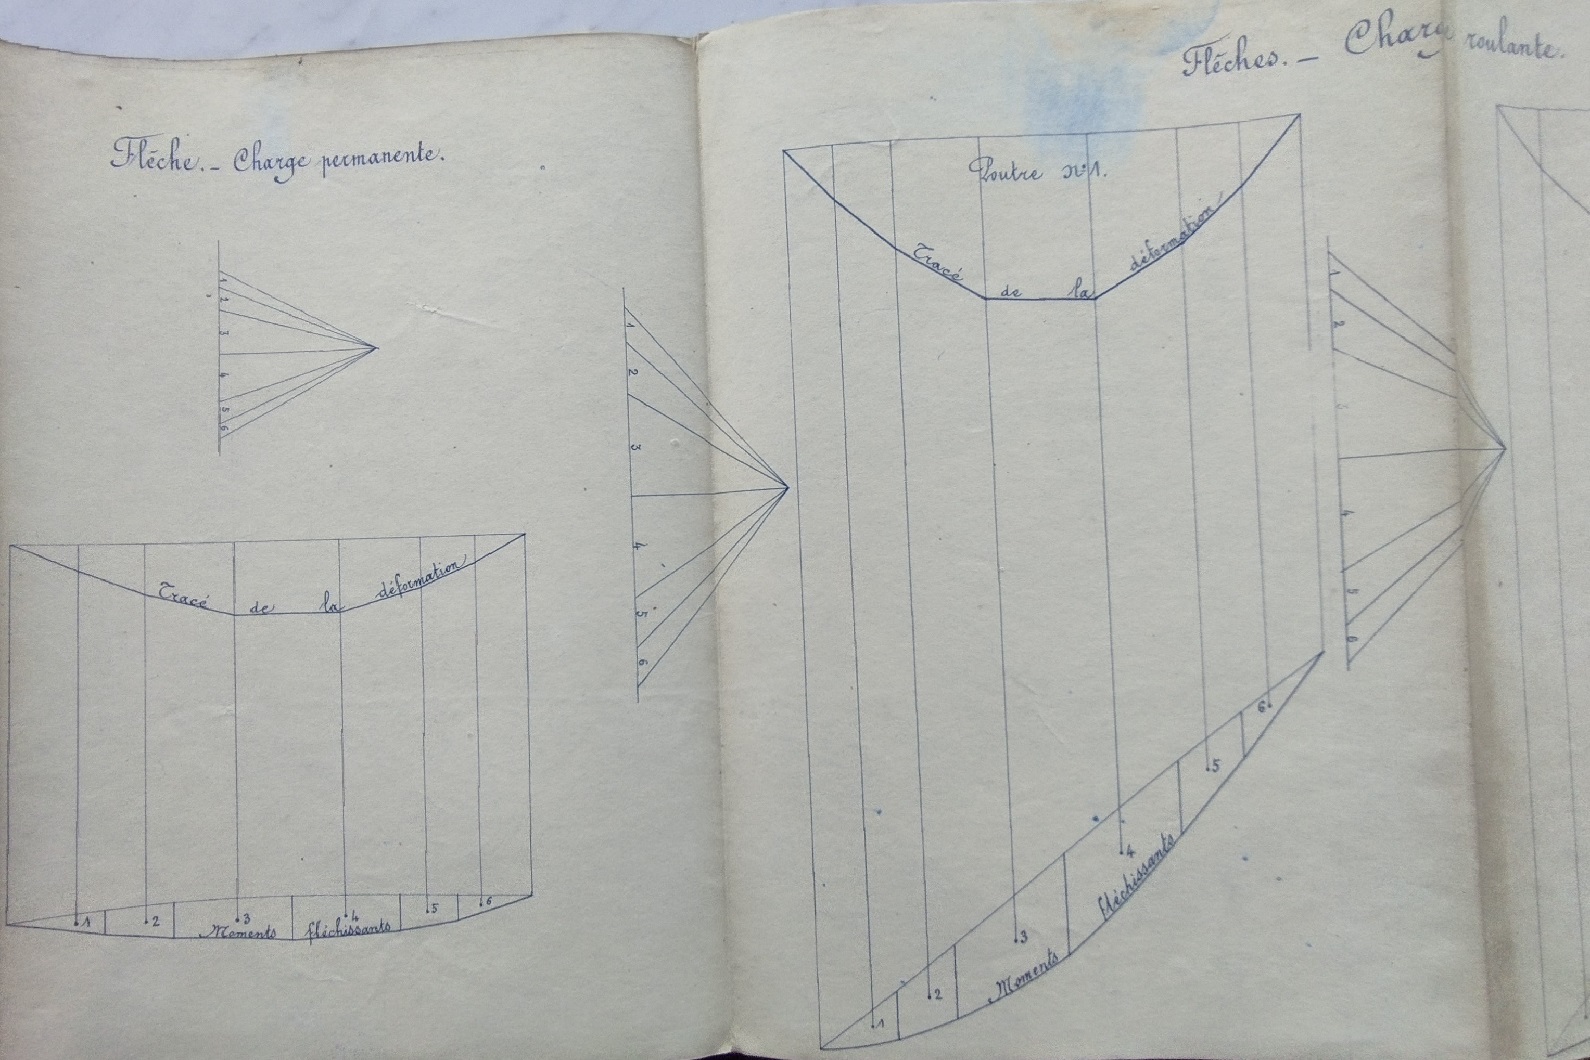 Flèche. – Charge permanente.
1
2
3
4
5
6
Tracé de la déformation
1 2 3 4 5 6
Moments fléchissants
1
2
3
4
5
6
Flèches. – Charge roulante.
Poutre n°1.
Tracé de la déformation
1
2
3
4
5
6
Moments fléchissants
1
2
3
4
5
6